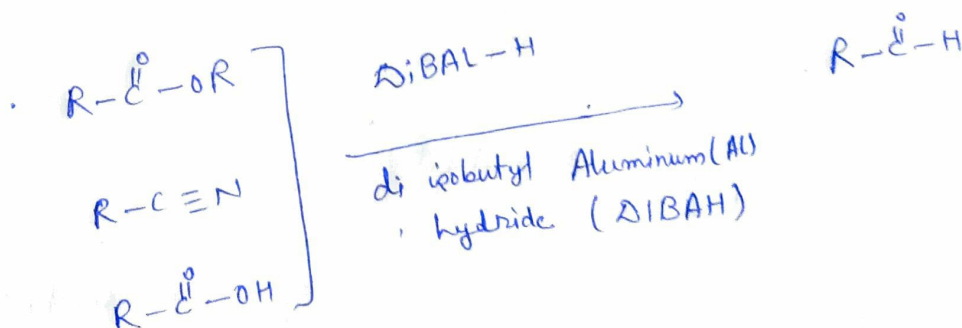 R-C(=O)-OR
R-C≡N
R-C(=O)-OH
DiBAL-H
di isobutyl Aluminum (Al)
hydride (DIBAH)
R-C(=O)-H